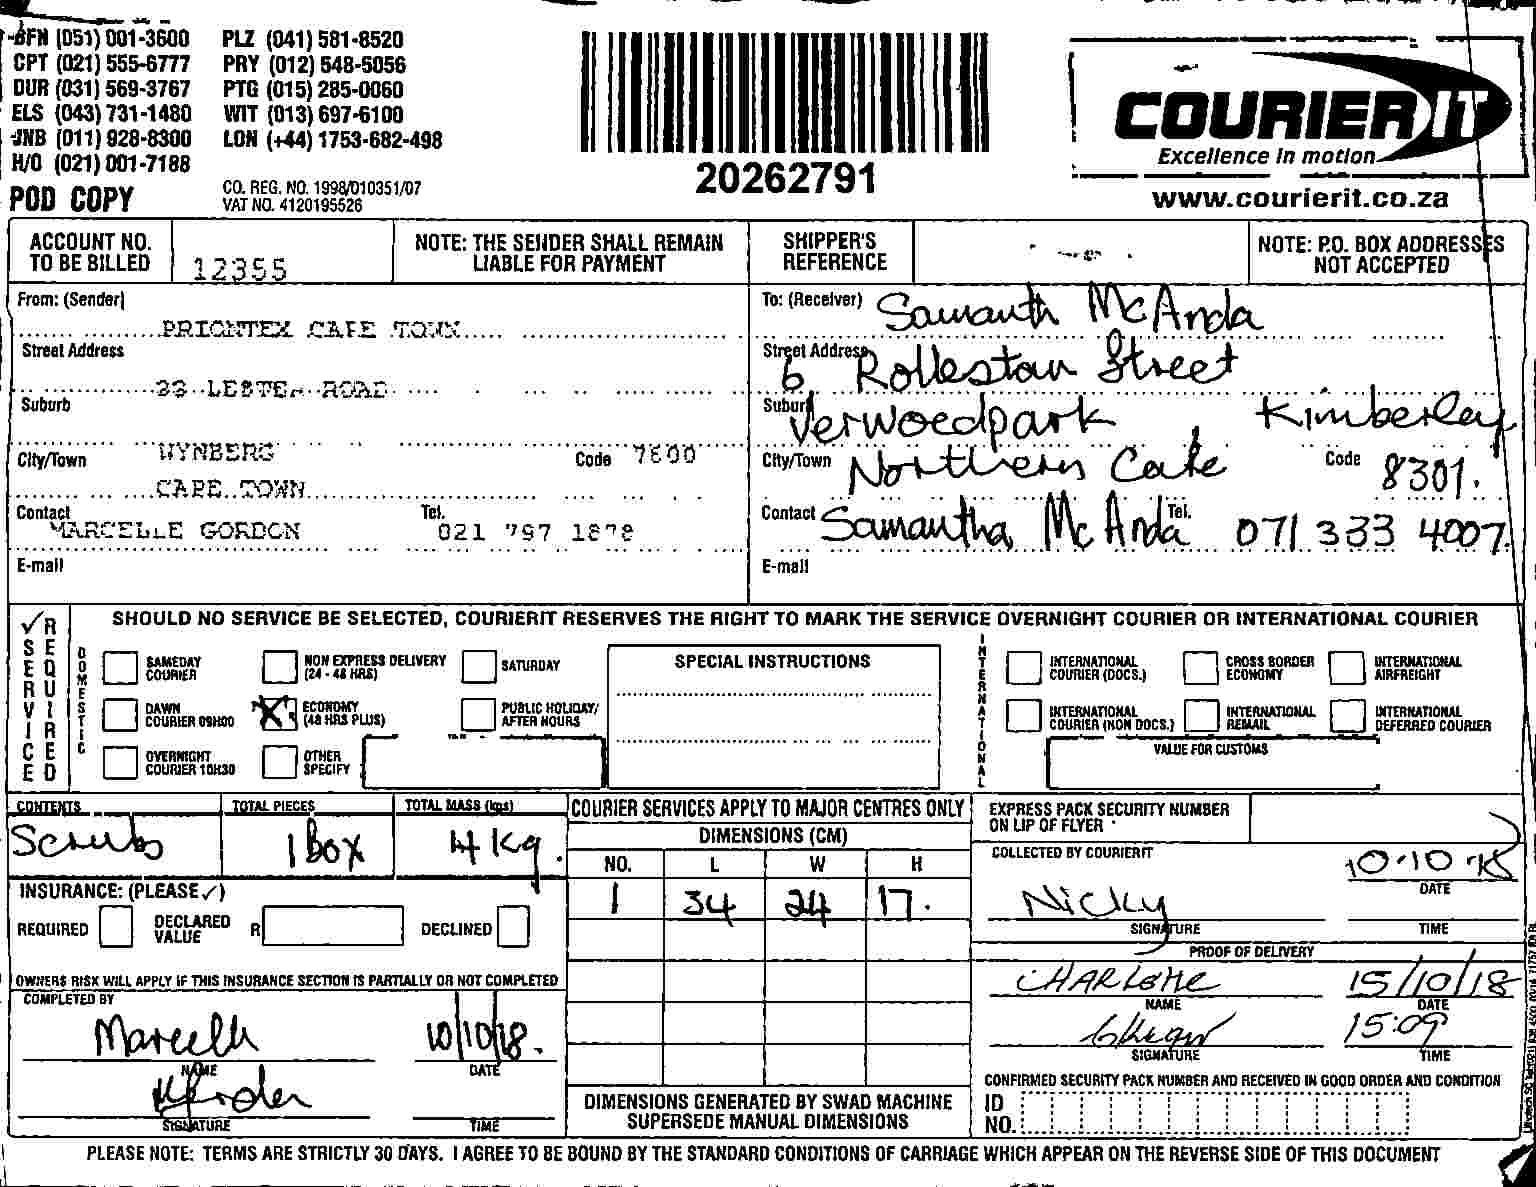 BFN (051) 001-3600 PLZ (041) 581-8520
CPT (021) 555-6777 PRY (012) 548-5056
DUR (031) 569-3767 PTG (015) 285-0060
ELS (043) 731-1480 WIT (013) 697-6100
JNB (011) 928-8300 LON (+44) 1753-682-498
H/O (021) 001-7188
POD COPY
CO. REG. NO. 1998/010351/07
VAT NO. 4120195526
20262791
COURIER IT
Excellence in motion
www.courierit.co.za
ACCOUNT NO. TO BE BILLED 12355
NOTE: THE SENDER SHALL REMAIN LIABLE FOR PAYMENT
SHIPPER'S REFERENCE
NOTE: P.O. BOX ADDRESSES NOT ACCEPTED
From: (Sender)
PRIONTEX CAPE TOWN
Street Address
33 LESTER ROAD
Suburb
WYNBERG
City/Town Code 7800
CAPE TOWN
Contact Tel.
MARCELLE GORDON 021 797 1878
E-mail
To: (Receiver) Samanth McAnda
Street Address 6 Rolleston Street
Suburb Verwoedpark Kimberley
City/Town Northern Cape Code 8301.
Contact Samantha McAnda Tel. 071 333 4007
E-mail
SERVICE REQUIRED
SHOULD NO SERVICE BE SELECTED, COURIERIT RESERVES THE RIGHT TO MARK THE SERVICE OVERNIGHT COURIER OR INTERNATIONAL COURIER
DOMESTIC
SAMEDAY COURIER
NON EXPRESS DELIVERY (24 - 48 HRS)
SATURDAY
DAWN COURIER 09H00
ECONOMY (48 HRS PLUS)
PUBLIC HOLIDAY/ AFTER HOURS
OVERNIGHT COURIER 10H30
OTHER SPECIFY
SPECIAL INSTRUCTIONS
INTERNATIONAL
INTERNATIONAL COURIER (DOCS.)
CROSS BORDER ECONOMY
INTERNATIONAL AIRFREIGHT
INTERNATIONAL COURIER (NON DOCS.)
INTERNATIONAL REMAIL
INTERNATIONAL DEFERRED COURIER
VALUE FOR CUSTOMS
CONTENTS TOTAL PIECES TOTAL MASS (kgs)
Scrubs 1 Box 4 Kg.
INSURANCE: (PLEASE ✓)
REQUIRED DECLARED VALUE R DECLINED
OWNERS RISK WILL APPLY IF THIS INSURANCE SECTION IS PARTIALLY OR NOT COMPLETED
COMPLETED BY
Marcelle 10/10/18.
NAME DATE
SIGNATURE TIME
COURIER SERVICES APPLY TO MAJOR CENTRES ONLY
DIMENSIONS (CM)
NO. L W H
1 34 24 17.
DIMENSIONS GENERATED BY SWAD MACHINE SUPERSEDE MANUAL DIMENSIONS
EXPRESS PACK SECURITY NUMBER ON LIP OF FLYER
COLLECTED BY COURIERIT
Nicky 10.10.18
SIGNATURE DATE
TIME
PROOF OF DELIVERY
CHARLOTTE 15/10/18
NAME DATE
15:09
SIGNATURE TIME
CONFIRMED SECURITY PACK NUMBER AND RECEIVED IN GOOD ORDER AND CONDITION
ID NO.
PLEASE NOTE: TERMS ARE STRICTLY 30 DAYS. I AGREE TO BE BOUND BY THE STANDARD CONDITIONS OF CARRIAGE WHICH APPEAR ON THE REVERSE SIDE OF THIS DOCUMENT